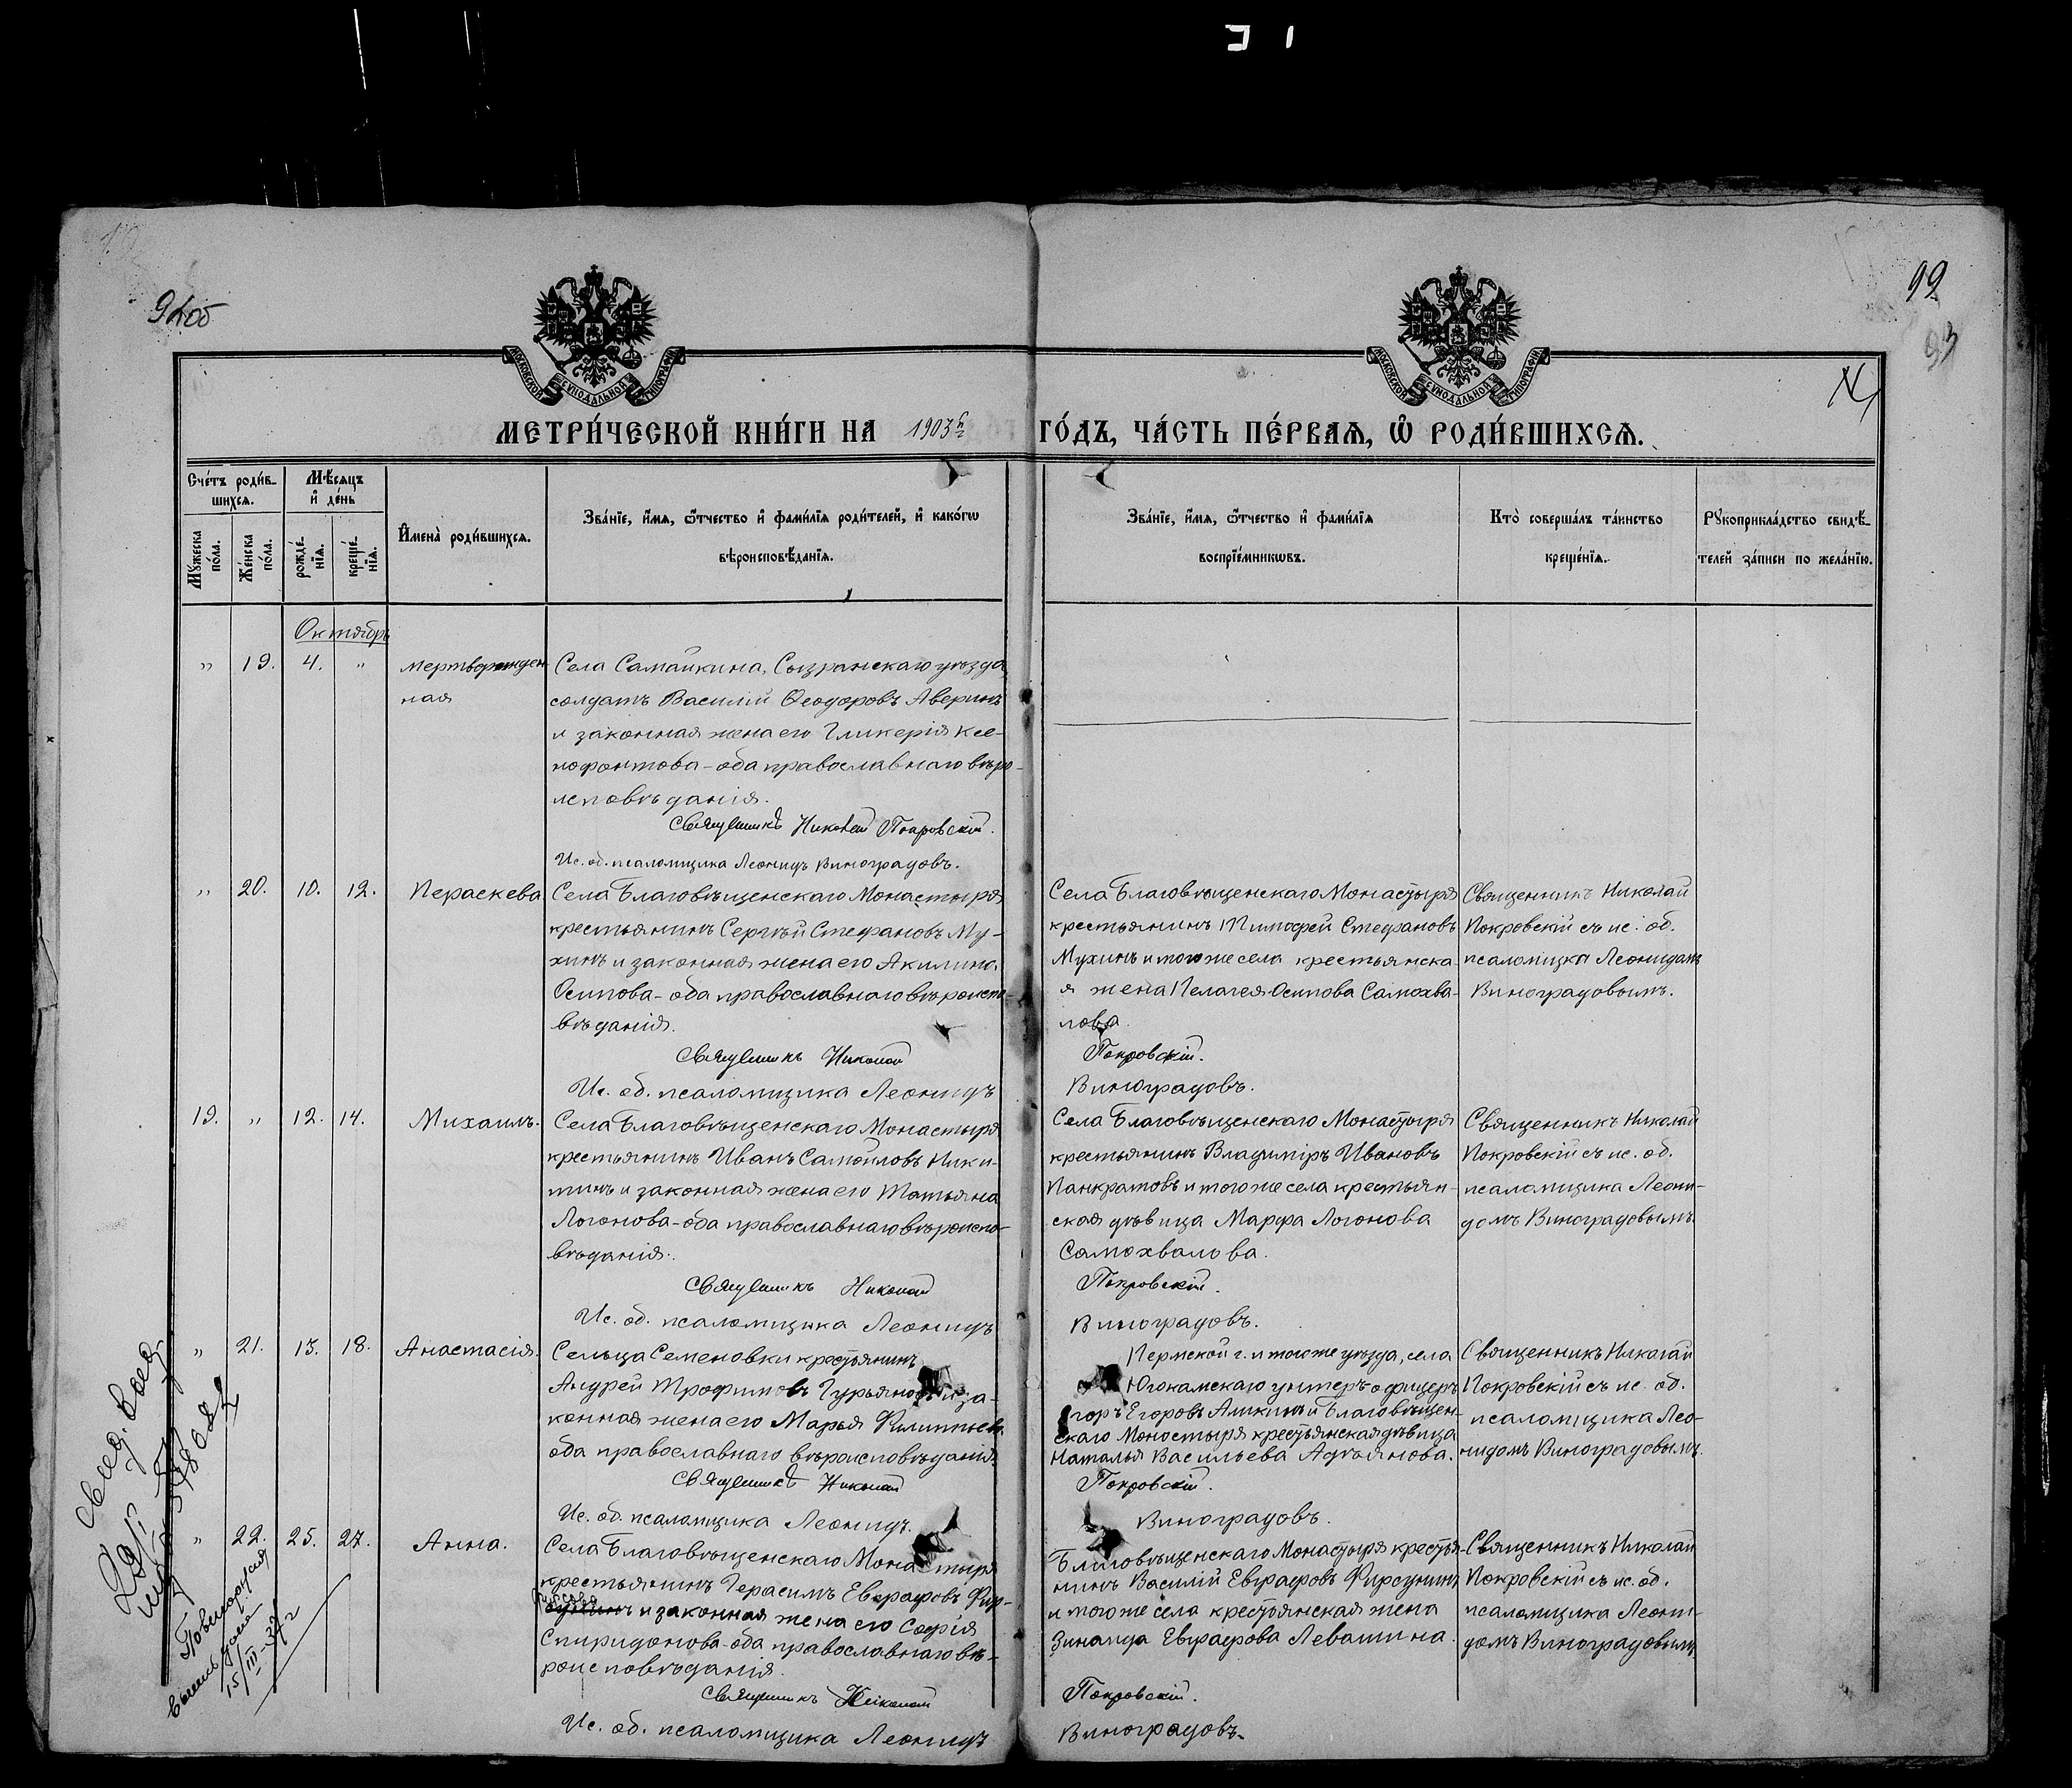 99
93
МОСКОВСКОЙ СѴНОДАЛЬНОЙ ТИПОГРАФІИ
МОСКОВСКОЙ СѴНОДАЛЬНОЙ ТИПОГРАФІИ
МЕТРИ́ЧЕСКОЙ КНИ́ГИ НА 1903й ГО́ДЪ, ЧА́СТЬ ПЕ́РВАѦ, Ѽ РОДИ́ВШИХСѦ.
Сче́тъ роди́в-
шихсѧ.
Мѣ́сѧцъ
и҆ де́нь
Мꙋ́жеска по́ла.
Же́нска по́ла.
рожде́-
нїѧ.
креще́-
нїѧ.
И҆мена̀ роди́вшихсѧ.
Зва́нїе, и҆́мѧ, ѻ҆́тчество и҆ фами́лїѧ роди́телей, и҆ како́гѡ
вѣроисповѣ́данїѧ.
Зва́нїе, и҆́мѧ, ѻ҆́тчество и҆ фами́лїѧ
воспрїе́мникѡвъ.
Кто̀ соверша́лъ та́инство
креще́нїѧ.
Рꙋкоприкла́дство свидѣ́-
телей за́писи по жела́нїю.
Октябрь
" 19. 4. " мертворожден
ная
Села Самайкина, Сызранскаго уѣзда
солдатъ Василій Ѳеодоровъ Аверинъ
и законная жена его Гликерія Ксе-
нофонтова - оба православнаго вѣро-
исповѣданія.
Священникъ Николай Покровскій.
Ис. об. псаломщика Леонидъ Виноградовъ.
" 20. 10. 12. Пераскева
Села Благовѣщенскаго Монастыря
крестьянинъ Сергѣй Стефановъ Му-
хинъ и законная жена его Акилина
Осипова - оба православнаго вѣроиспо-
вѣданія.
Священникъ Николай
Ис. об. псаломщика Леонидъ
Села Благовѣщенскаго Монастыря
крестьянинъ Тимофей Стефановъ
Мухинъ и того же села крестьянска-
я жена Пелагея Осипова Самохва-
лова.
Покровскій.
Виноградовъ.
Священникъ Николай
Покровскій съ ис. об.
псаломщка Леонидомъ
Виноградовымъ.
19. " 12. 14. Михаилъ.
Села Благовѣщенскаго Монастыря
крестьянинъ Иванъ Самойловъ Ники-
тинъ и законная жена его Татьяна
Логонова - оба православнаго вѣроиспо-
вѣданія.
Священникъ Николай
Ис. об. псаломщика Леонидъ
Села Благовѣщенскаго Монастыря
крестьянинъ Владиміръ Ивановъ
Панкратовъ и того же села крестьян-
ская дѣвица Марфа Логонова
Самохвалова.
Покровскій.
Виноградовъ.
Священникъ Николай
Покровскій съ ис. об.
псаломщика Леони-
домъ Виноградовымъ.
" 21. 13. 18. Анастасія.
Сельца Семеновки крестьянинъ
Андрей Трофимовъ Гурьяновъ и за-
конная жена его Марья Филиппьева
оба православнаго вѣроисповѣданія
Священникъ Николай
Ис. об. псаломщика Леонидъ.
Пермской г. и тоюже уѣзда, села
Югокамскаго унтеръ офицеръ
Егоръ Егоровъ Аликинъ и Благовѣщен-
скаго Монастыря крестьянская дѣвица
Наталья Васильева Адѣянова.
Покровскій.
Виноградовъ.
Священникъ Николай
Покровскій съ ис. об.
псаломщика Лео-
нидомъ Виноградовымъ.
" 22. 25. 27. Анна.
Села Благовѣщенскаго Монастыря
крестьянинъ Герасимъ Евграфовъ Фир-
и законная жена его Софія
Спиридонова - оба православнаго вѣ-
роисповѣданія.
Священникъ Николай
Ис. об. псаломщика Леонидъ
Благовѣщенскаго Монастыря крестья-
нинъ Василій Евграфовъ Фирсунинъ
и того же села крестьянская жена
Зинаида Евграфова Левашина.
Покровскій.
Виноградовъ.
Священникъ Николай
Покровскій съ ис. об.
псаломщика Леони-
домъ Виноградовымъ
15/III-37г